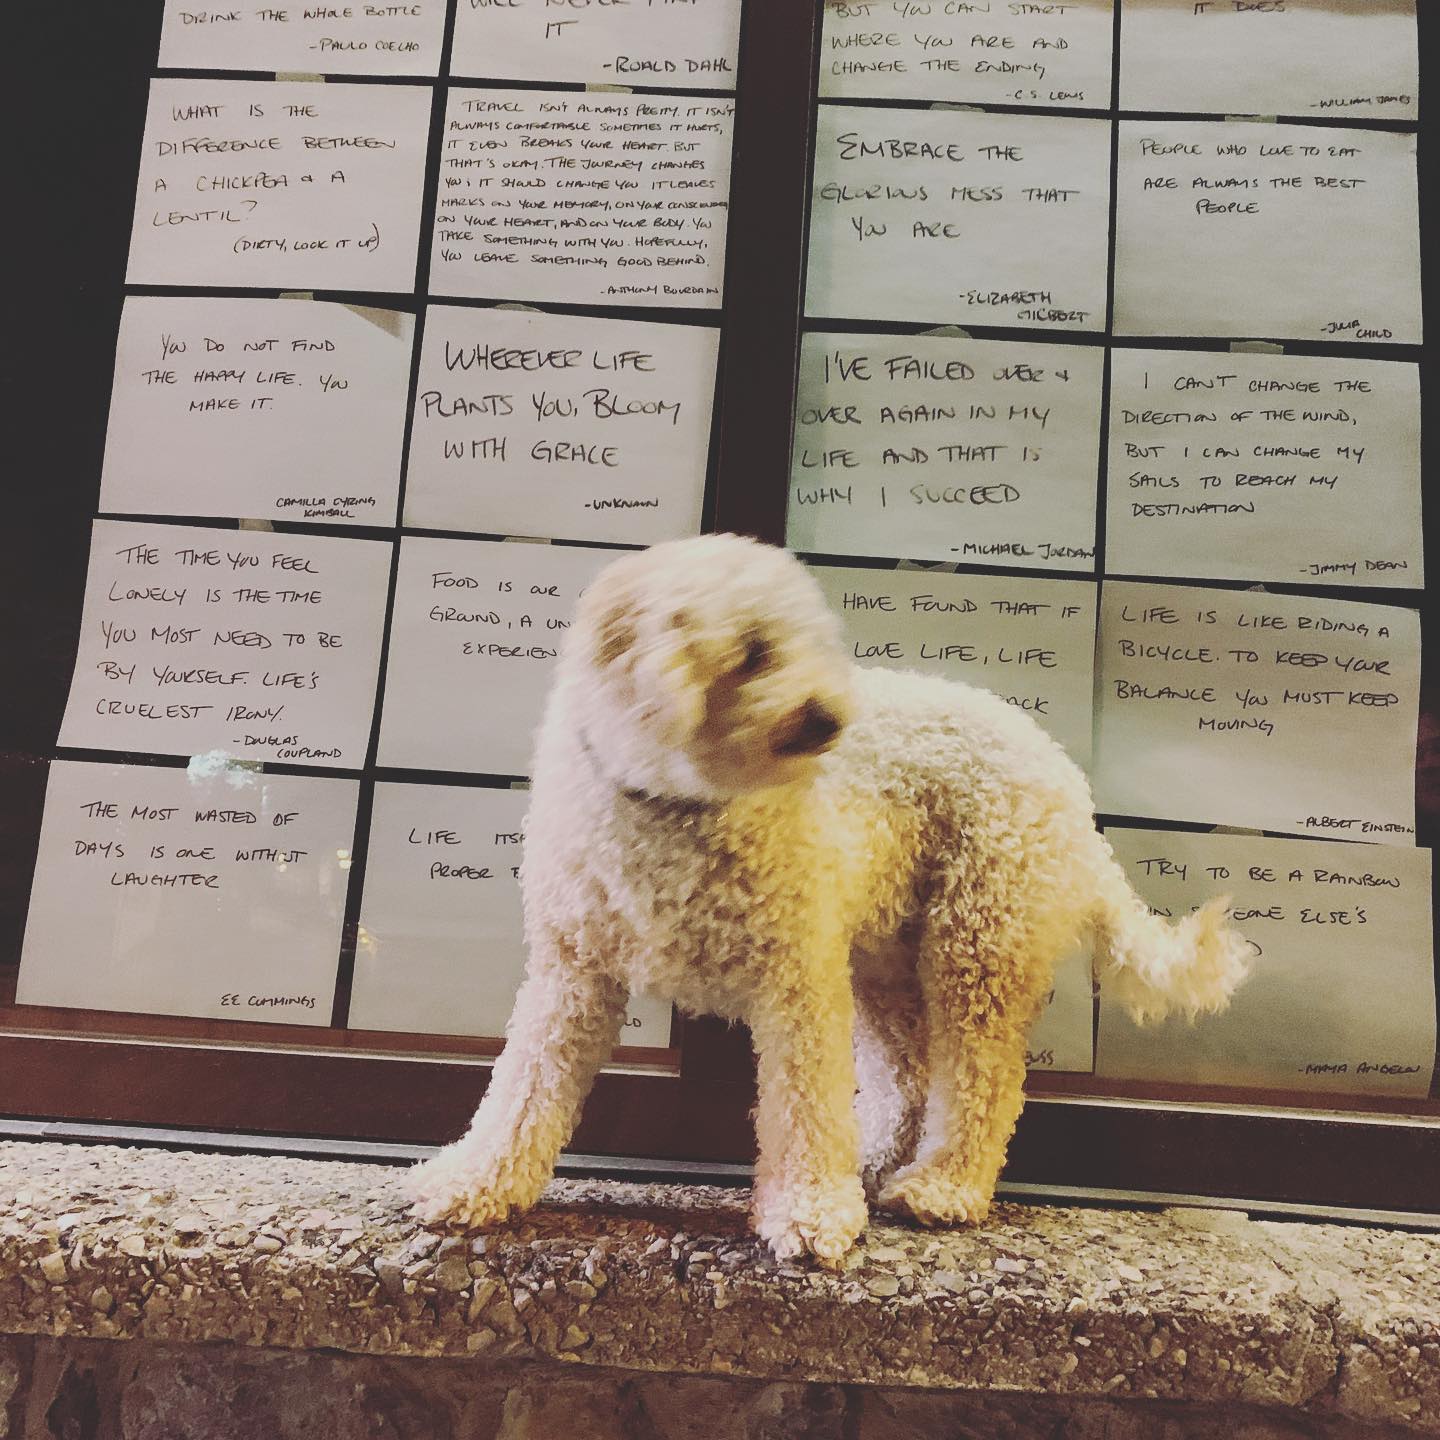 DRINK THE WHOLE BOTTLE
-PAULO COELHO
WILL NEVER FIND
IT
-ROALD DAHL
BUT YOU CAN START
WHERE YOU ARE AND
CHANGE THE ENDING
-C.S. LEWIS
IT DOES
-WILLIAM JAMES
WHAT IS THE
DIFFERENCE BETWEEN
A CHICKPEA & A
LENTIL?
(DIRTY, LOOK IT UP)
TRAVEL ISN'T ALWAYS PRETTY. IT ISN'T
ALWAYS COMFORTABLE SOMETIMES IT HURTS,
IT EVEN BREAKS YOUR HEART. BUT
THAT'S OKAY. THE JOURNEY CHANGES
YOU; IT SHOULD CHANGE YOU IT LEAVES
MARKS ON YOUR MEMORY, ON YOUR CONSCIOUSNESS
ON YOUR HEART, AND ON YOUR BODY. YOU
TAKE SOMETHING WITH YOU. HOPEFULLY,
YOU LEAVE SOMETHING GOOD BEHIND.
-ANTHONY BOURDAIN
EMBRACE THE
GLORIOUS MESS THAT
YOU ARE
-ELIZABETH
GILBERT
PEOPLE WHO LOVE TO EAT
ARE ALWAYS THE BEST
PEOPLE
-JULIA
CHILD
YOU DO NOT FIND
THE HAPPY LIFE. YOU
MAKE IT.
CAMILLA EYRING
KIMBALL
WHEREVER LIFE
PLANTS YOU, BLOOM
WITH GRACE
-UNKNOWN
I'VE FAILED OVER &
OVER AGAIN IN MY
LIFE AND THAT IS
WHY I SUCCEED
-MICHAEL JORDAN
I CAN'T CHANGE THE
DIRECTION OF THE WIND,
BUT I CAN CHANGE MY
SAILS TO REACH MY
DESTINATION
-JIMMY DEAN
THE TIME YOU FEEL
LONELY IS THE TIME
YOU MOST NEED TO BE
BY YOURSELF. LIFE'S
CRUELEST IRONY.
-DOUGLAS
COUPLAND
FOOD IS OUR
GROUND, A UN
EXPERIEN
HAVE FOUND THAT IF
LOVE LIFE, LIFE
ACK
LIFE IS LIKE RIDING A
BICYCLE. TO KEEP YOUR
BALANCE YOU MUST KEEP
MOVING
-ALBERT EINSTEIN
THE MOST WASTED OF
DAYS IS ONE WITHOUT
LAUGHTER
EE CUMMINGS
LIFE ITS
PROPER
LD
USS
TRY TO BE A RAINBOW
IN SOMEONE ELSE'S
-MAYA ANGELOU